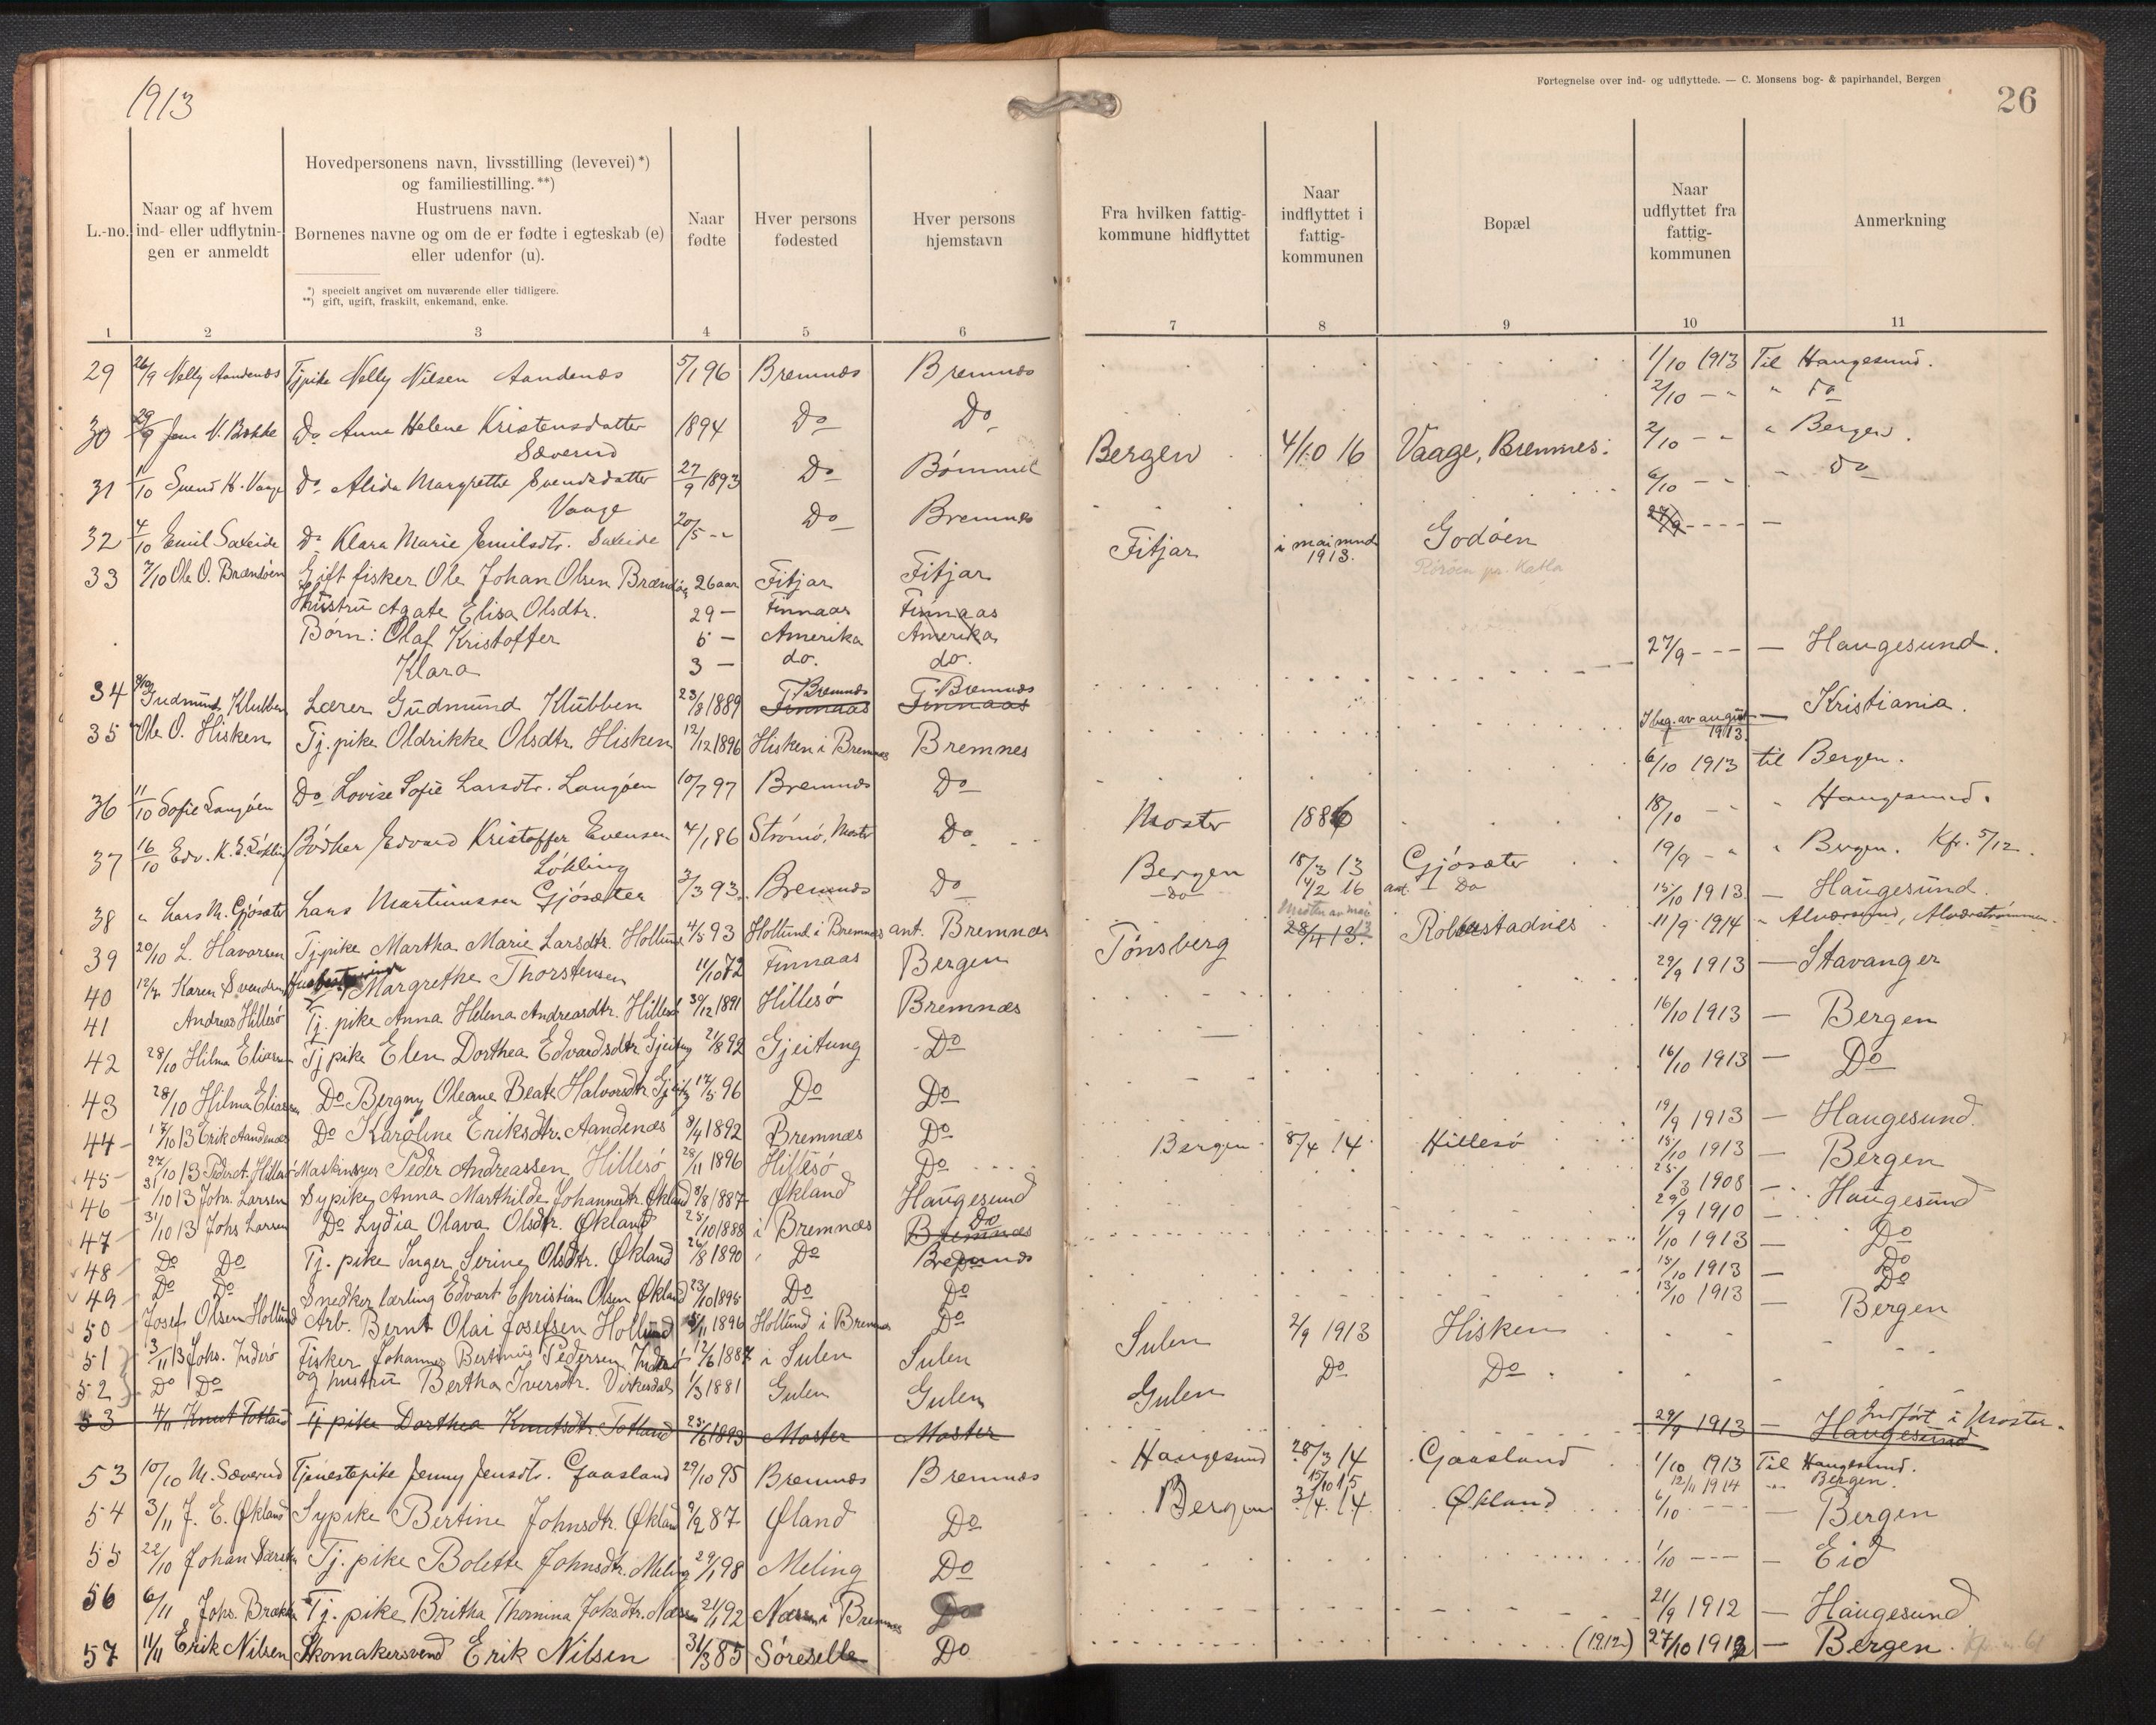 1913
Fortegnelse over ind- og udflyttede. — C. Monsens bog- & papirhandel, Bergen
26
L.-no.
Naar og af hvem ind- eller udflytnin- gen er anmeldt
Hovedpersonens navn, livsstilling (levevei) *)
og familiestilling. **)
Hustruens navn.
Børnenes navne og om de er fødte i egteskab (e)
eller udenfor (u).
*) specielt angivet om nuværende eller tidligere.
**) gift, ugift, fraskilt, enkemand, enke.
Naar fødte
Hver persons fødested
Hver persons hjemstavn
Fra hvilken fattig- kommune hidflyttet
Naar indflyttet i fattig- kommunen
Bopæl
Naar udflyttet fra fattig- kommunen
Anmerkning
1 2 3 4 5 6 7 8 9 10 11
29 26/9 Nelly Aandenæs Tjpike Nelly Nilsen Aandenæs 5/1 96 Bremnæs Bremnæs 1/10 1913 Til Haugesund.
30 29/9 Do Anna Helene Kristensdatter Sæverud 1894 Do Do 2/10 - - " Do
31 1/10 Svend H. Vaage Do Alida Margrethe Svendsdatter Vaage 27/9 1893 Do Bømmel Bergen 4/10 16 Vaage, Bremnes. 2/10 - - " Bergen.
32 4/10 Emil Saxeide Do Klara Marie Emilsdtr. Saxeide 20/5 - - Do Bremnes 6/10 - - " Do
33 7/10 Ole O. Brændøen Gift fisker Ole Johan Olsen Brændøen 26 aar Fitjar Fitjar Fitjar i mai mnd 1913. Godøen 27/9 - - - - —
Hustru Agate Elisa Olsdtr. 29 — Finnaas Finnaas
Børn: Olaf Kristoffer 5 — Amerika Amerika
Klara 3 — do. do.
34 9/10 Gudmund Klubben Lærer Gudmund Klubben 23/8 1889 Finnaas Bremnæs Finnaas Bremnæs 27/9 - - - — Haugesund.
35 Ole O. Hisken Tj. pike Oldrikke Olsdtr. Hisken 12/12 1896 Hisken i Bremnæs Bremnes I beg. av august 1913. — Kristiania.
36 11/10 Sofie Langøen Do Lovise Sofie Larsdtr. Langøen 10/7 97 Bremnæs Do 6/10 1913 til Bergen.
37 16/10 Edv. K. E. Løkling Bødker Edvard Kristoffer Evensen Løkling 4/1 86 Strømø, Moster Do Moster 1886 18/10 - - " Haugesund.
38 " Lars M. Gjøsæter Lars Martinussen Gjøsæter 3/3 93 Bremnæs Do Bergen 18/3 13 Gjøsæter 19/9 - " " Bergen. Kfr. 5/12.
Do 14/2 16 ant. Do
39 20/10 L. Havorsen Tjpike Martha Marie Larsdtr. Hollund 4/5 93 Hollund i Bremnæs ant. Bremnæs 15/10 1913 — Haugesund.
40 Karen Svendsen Margrethe Thorstensen 11/10 72 Finnaas Bergen Tønsberg 28/4 13. 11/9 1914 " Alværsund, Alværstrømmen.
41 Andreas Hillesø Tj. pike Anna Helena Andreasdtr. Hillesø 30/12 1891 Hillesø Bremnæs 29/9 1913 — Stavanger
42 28/10 Hilma Eliassen Tj pike Elen Dorthea Edvardsdtr. Gjeitung 21/8 92 Gjeitung Do 16/10 1913 — Bergen
43 28/10 Hilma Eliassen Do Bergny Oleane Beate Halvorsdtr. Gjeitung 17/5 96 Do Do 16/10 1913 — Do
44 17/10 13 Erik Aandenæs Do Karoline Eriksdtr. Aandenæs 8/4 1892 Bremnæs Do 19/9 1913 — Haugesund.
45 27/10 13 Peder A. Hillesø Peder Andreassen Hillesø 28/11 1896 Hillesø Do Bergen 8/4 14 Hillesø 15/10 1913 — Bergen
46 31/10 13 Johs. Larsen Sypike Anna Marthilde Johannesdtr. Økland 8/8 1887 Økland Haugesund 25/3 1908 — Haugesund
47 31/10 13 Johs Larsen Do Lydia Olava Olsdtr. Økland 25/10 1888 i Bremnæs Bremnæs Do 29/9 1910 — Do
48 Do Do Tj. pike Inger Serine Olsdtr. Økland 26/8 1890 Do Bremnæs 1/10 1913 — Do
49 Do Do Snedkerlærling Edvart Christian Olsen Økland 23/10 1895 Do Do 15/10 1913 — Do
50 Josef Olsen Hollund Arb. Bernt Olai Josefsen Hollund 5/11 1896 Hollund i Bremnæs Do 13/10 1913 — Bergen
51 3/11 13 Johs. Inderø Fisker Johannes Bertinus Pedersen Inderø 12/6 1887 i Sulen Sulen Sulen 2/9 1913 Hisken
52 Do Do og hustru Bertha Iversdtr. Virkesdal 1/3 1881 Gulen Gulen Gulen Do Do
53 4/11 Knut Totland Tj pike Dorthea Knutsdtr. Totland 25/6 1893 Moster Moster 29/9 1913 — Haugesund Indført i Moster.
53 10/10 M. Sæverud Tjenestepike Jenny Jensdtr. Gaasland 29/10 95 Bremnæs Bremnæs Haugesund 28/3 14 Gaasland 1/10 1913 Til Haugesund.
15/10 15 12/11 1914 " Bergen.
54 3/11 J. E. Økland Sypike Bertine Johnsdtr. Økland 9/2 87 Øland Do Bergen 3/4 14 Økland 6/10 - - - — Bergen
55 22/10 Johan Tj. pike Bolette Johnsdtr. Meling 29/1 98 Meling Do 1/10 - - - — Eid
56 6/11 Johs. Brække Tj. pike Britha Thomina Johsdtr. Næssen 21/1 92 i Bremnes Do 21/9 1912 — Haugesund
57 11/11 Erik Nilsen Skomakersvend Erik Nilsen 31/3 85 Søreselle Do (1912) 27/10 1912 — Bergen.